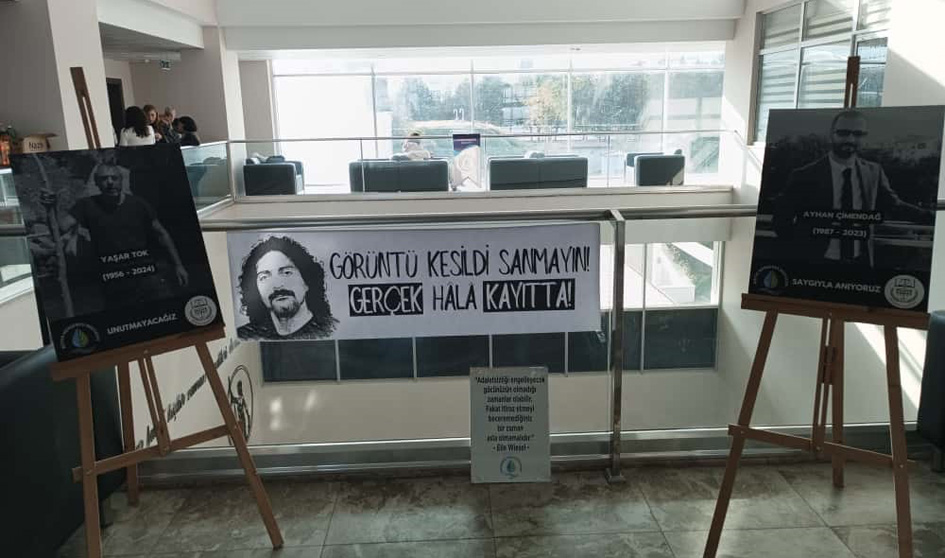 YAŞAR TOK
(1956 - 2024)
UNUTMAYACAĞIZ
GÖRÜNTÜ KESİLDİ SANMAYIN!
GERÇEK HÂLÂ KAYITTA!
"Adaletsizliği engelleyecek
gücünüzün olmadığı
zamanlar olabilir.
Fakat itiraz etmeyi
beceremediğiniz
bir zaman
asla olmamalıdır."
- Elie Wiesel -
AYHAN ÇİMENDAĞ
(1987 - 2023)
SAYGIYLA ANIYORUZ